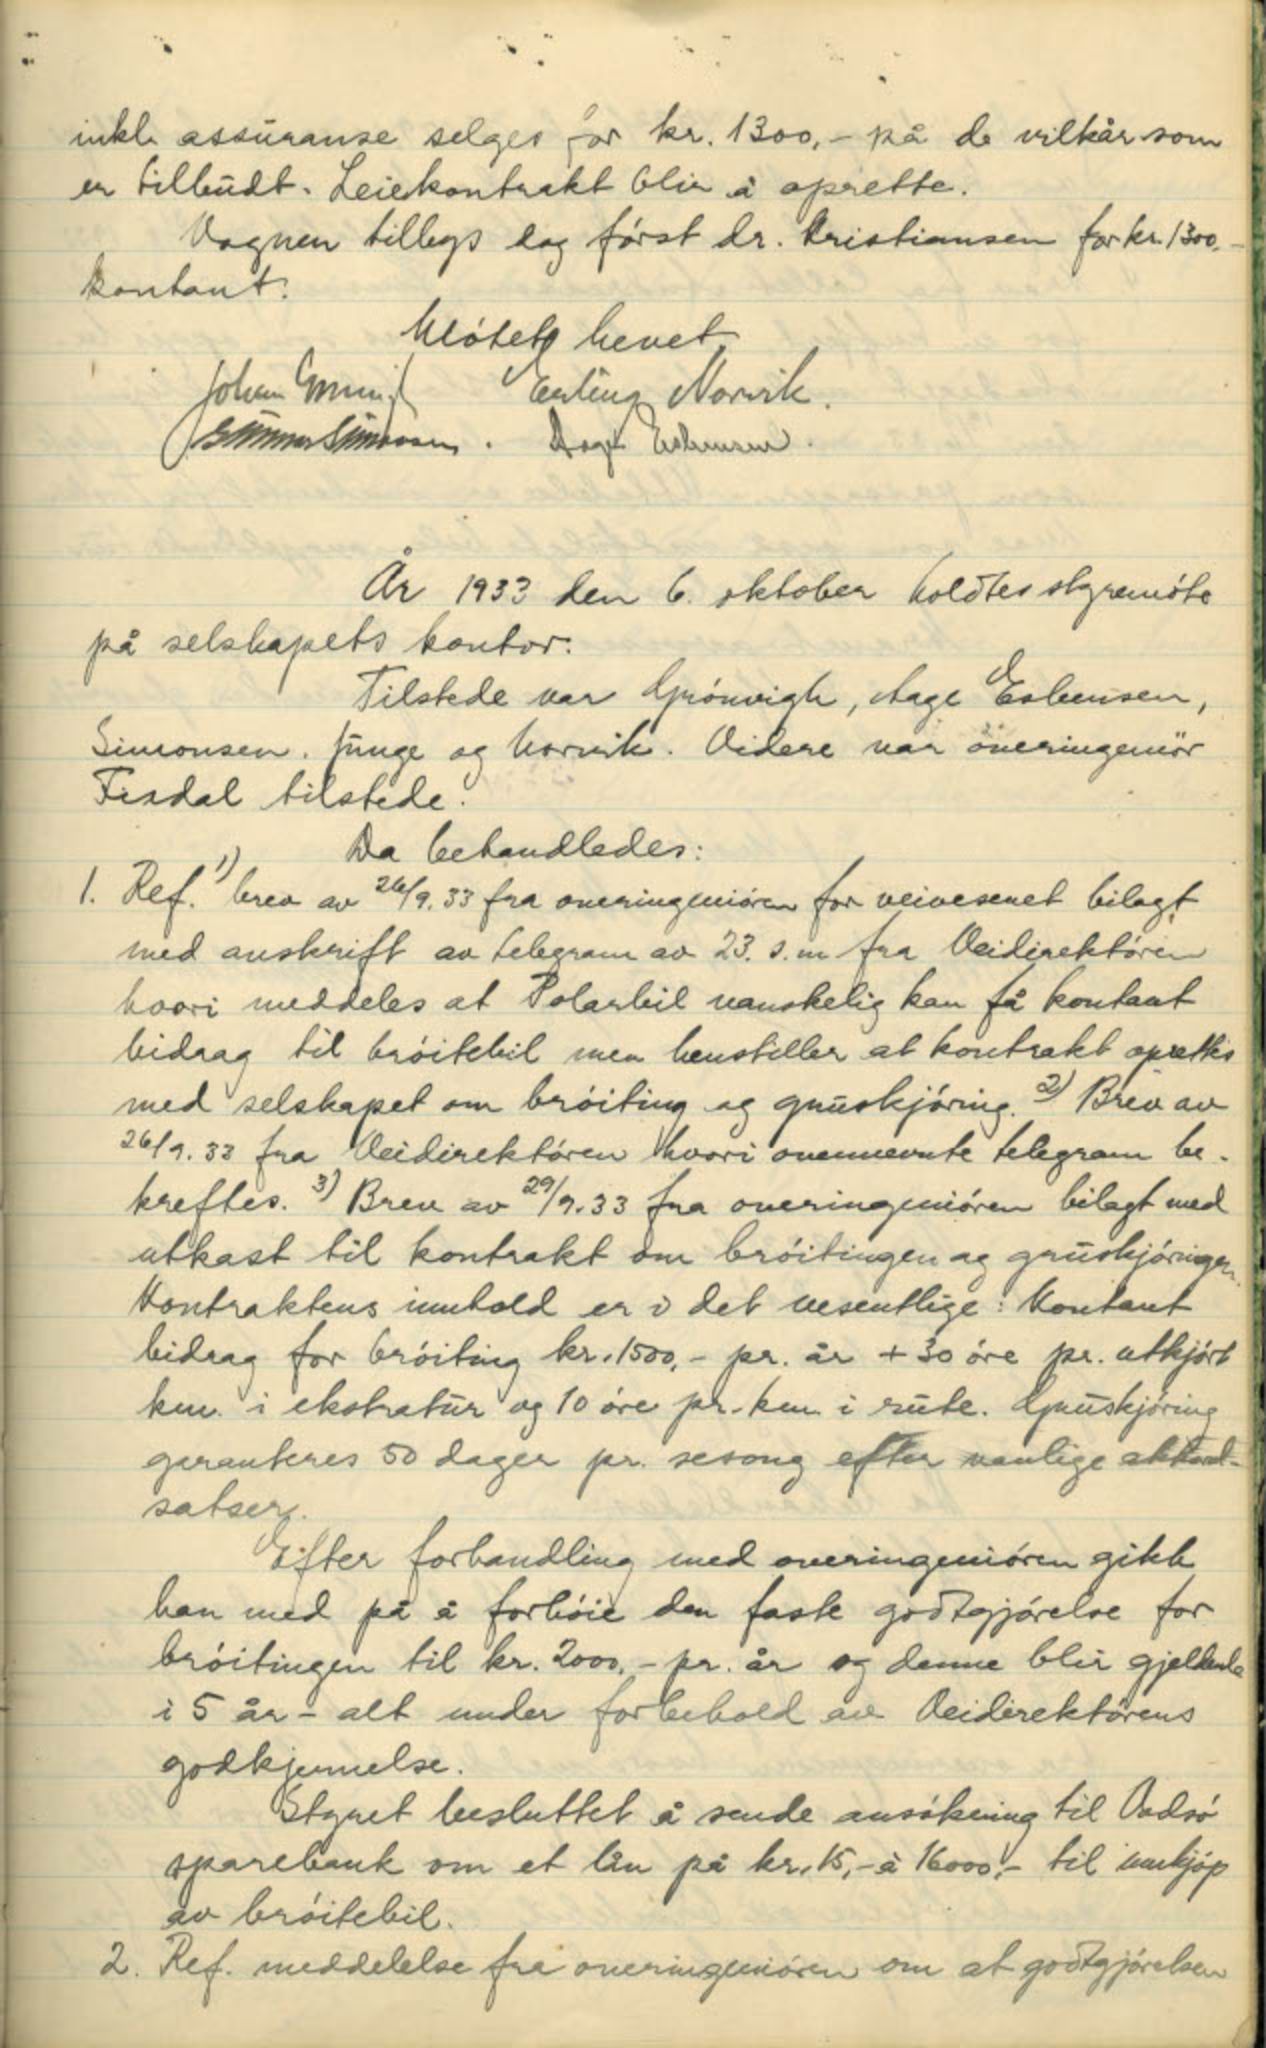 inkl. assuranse selges for kr. 1300,- på de vilkår som
er tilbudt. Leiekontrakt blir å oprette.
Vognen tilbys dog först dr. Kristiansen for kr. 1300,-
kontant.
Mötet hevet.
Johan Erling Norvik.
Gunnar Simonsen. Aage Esbensen.
År 1933 den 6. oktober holdtes styremöte
på selskapets kontor.
Tilstede var Grönvigh, Aage Esbensen,
Simonsen, Junge og Norvik. Videre var overingeniör
Fixdal tilstede.
Da behandledes:
1. Ref. 1) brev av 26/9.33 fra overingeniören for veivesenet bilagt
med avskrift av telegram av 23. s.m fra Veidirektören
hvori meddeles at Polarbil vanskelig kan få kontant
bidrag til bröitebil men henstiller at kontrakt oprettes
med selskapet om bröiting og gruskjöring. 2) Brev av
26/9.33 fra Veidirektören hvori ovennevnte telegram be-
kreftes. 3) Brev av 29/9.33 fra overingeniören bilagt med
utkast til kontrakt om bröitingen og gruskjöringen.
Kontraktens innhold er i det vesentlige: Kontant
bidrag for bröiting kr. 1500,- pr. år + 30 öre pr. utkjört
km. i ekstratur og 10 öre pr. km i rute. Gruskjöring
garanteres 50 dager pr. sesong efter vanlige akkord-
satser.
Efter forhandling med overingeniören gikk
han med på å forhöie den faste godtgjörelse for
bröitingen til kr. 2000,- pr. år og denne blir gjeldende
i 5 år - alt under forbehold av Veidirektörens
godkjennelse.
Styret besluttet å sende ansökning til Vadsö
sparebank om et lån på kr. 15,- à 16000,- til innkjöp
av bröitebil.
2. Ref. meddelelse fra overingeniören om at godtgjörelsen